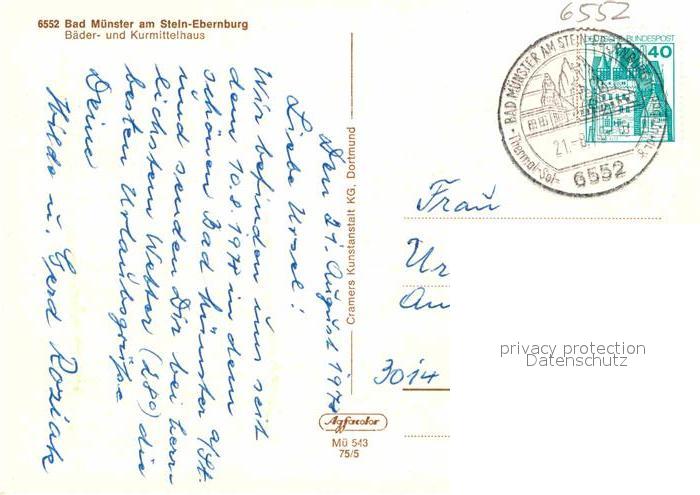 6552 Bad Münster am Stein-Ebernburg
Bäder- und Kurmittelhaus
Den 21. August 1978
Liebe Ursel!
Wir befinden uns seit
dem 10.8.1978 in dem
schönen Bad Münster a/St.
und senden Dir bei herr-
lichstem Wetter (28°) die
besten Urlaubsgrüße
Deine
Hilde u. Gerd Roziak
Cramers Kunstanstalt KG, Dortmund
Agfacolor
Mü 543
75/5
6552
DEUTSCHE BUNDESPOST
40
BAD MÜNSTER AM STEIN-EBERNBURG
Thermal-Sol-
21.-8
6552
Frau
Ur
An
3014
privacy protection
Datenschutz